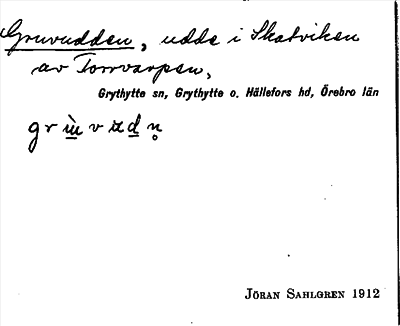 Gruvudden, udde i Skatviken
av Torrvarpen,
Grythytte sn, Grythytte o. Hällefors hd, Örebro län
JÖRAN SAHLGREN 1912